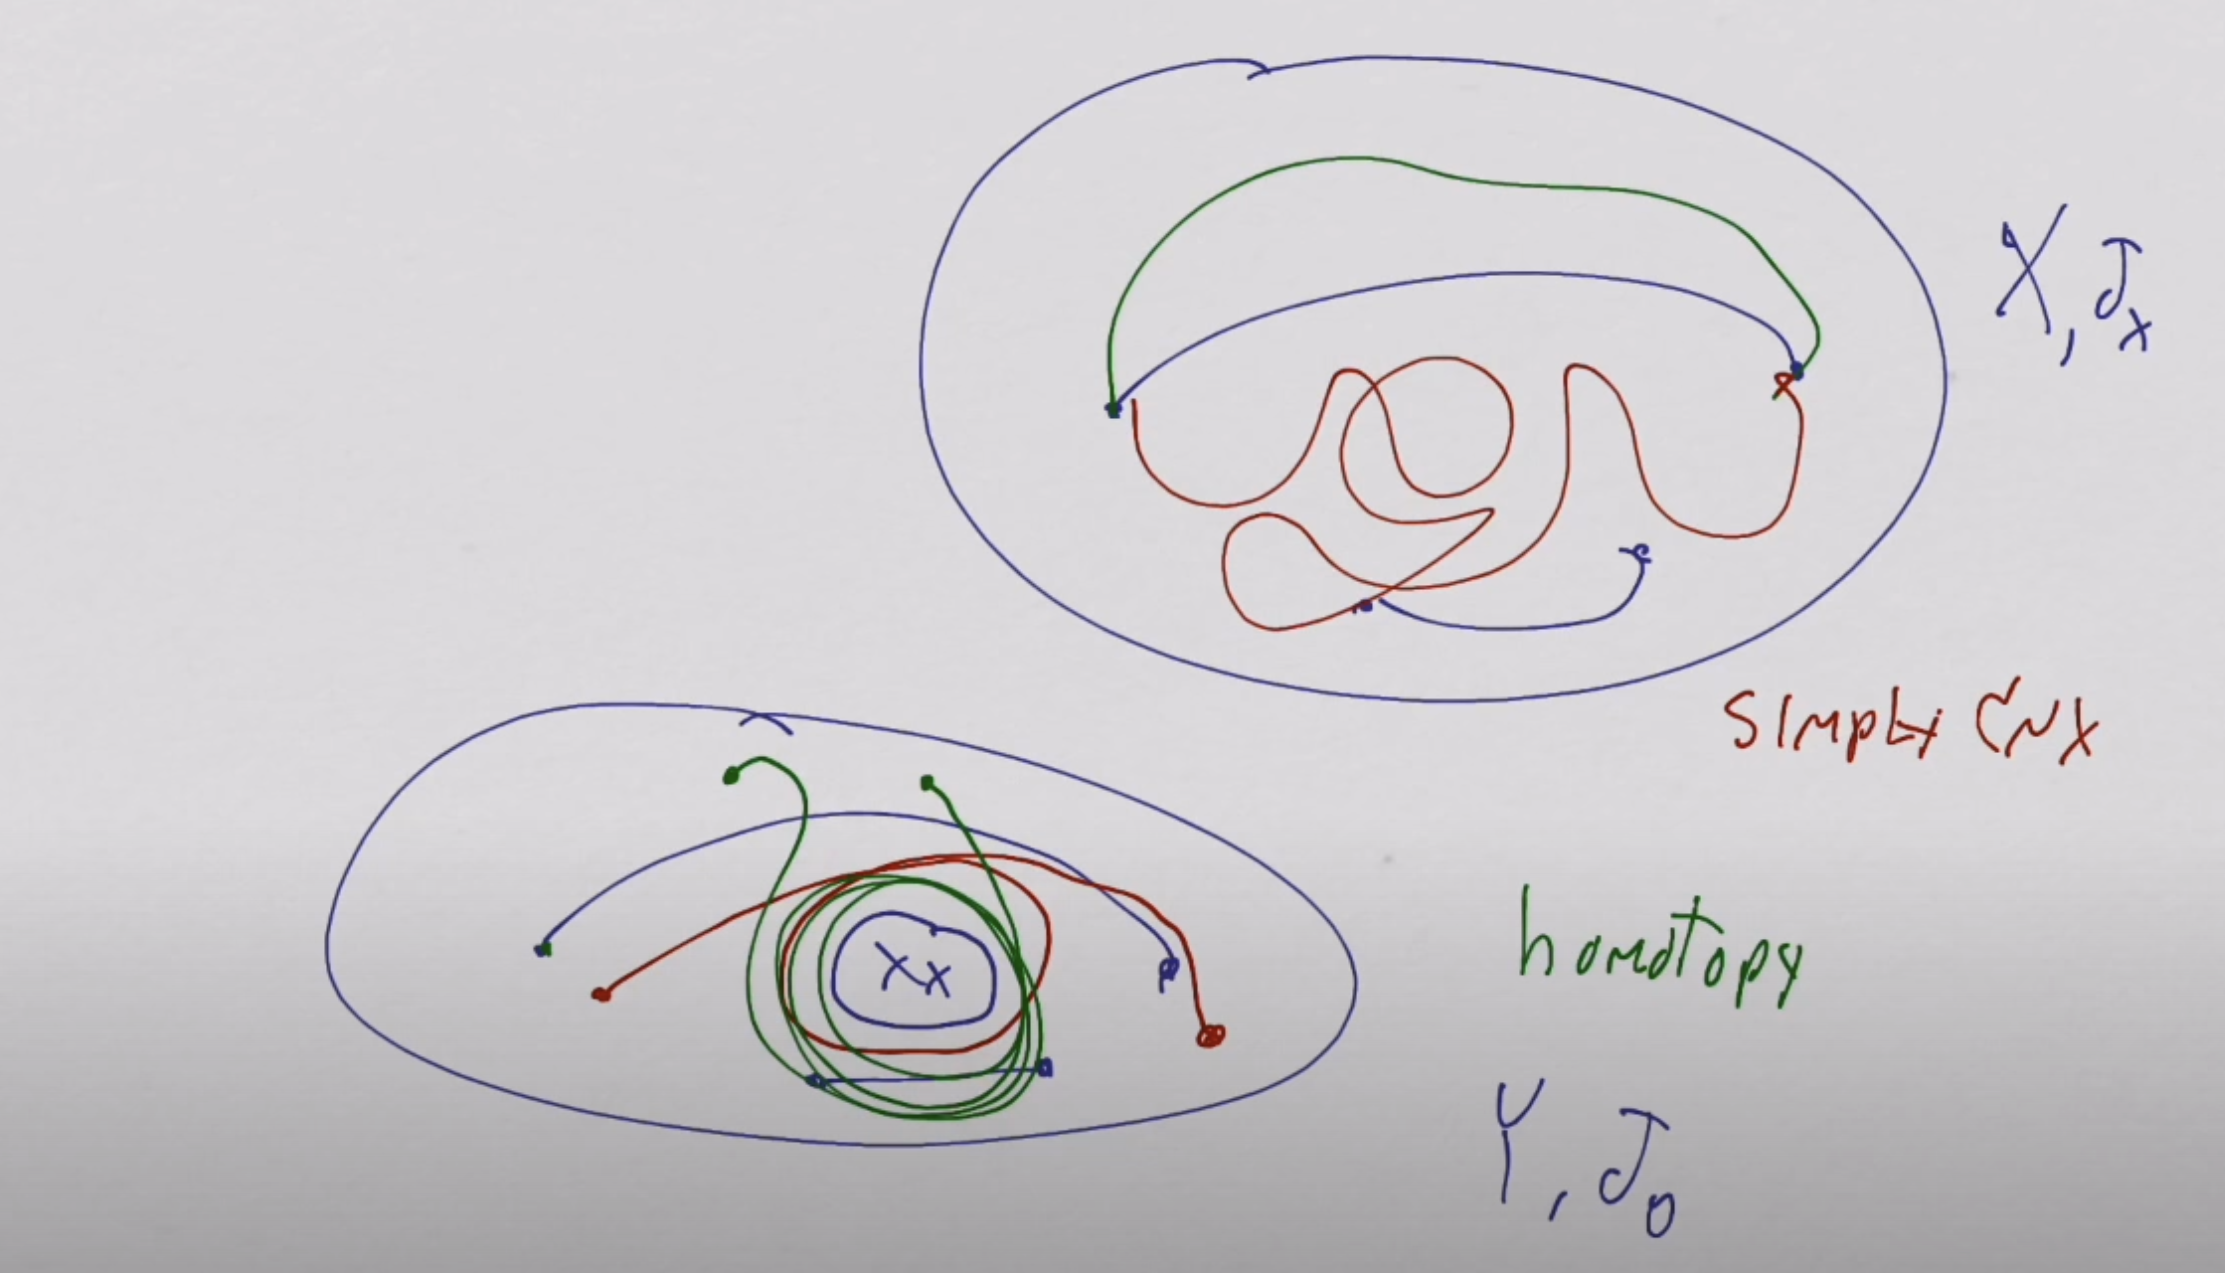 X, J_x
simply cnx
xx
homotopy
Y, J_0